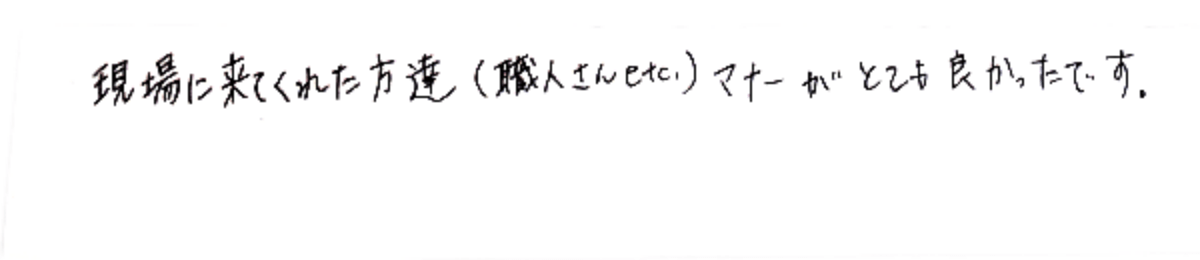 現場に来てくれた方達(職人さんetc.)マナーがとても良かったです.